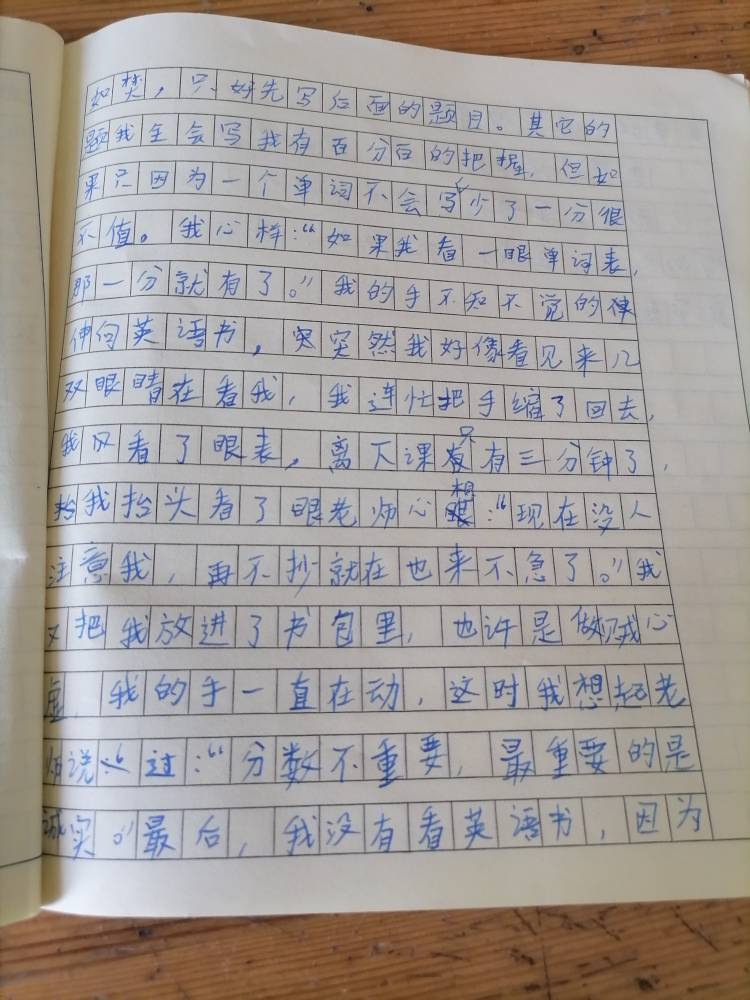 如焚，只好先写后面的题目。其它的
题我全会写我有百分百的把握，但如
果只因为一个单词不会写少了一分很
不值。我心样：“如果我看一眼单词表，
那一分就有了。”我的手不知不觉的伸
伸向英语书，突突然我好像看见来几
双眼睛在看我，我连忙把手缩了回去，
我又看了眼表，离下课只有三分钟了，
抬我抬头看了眼老师心想：“现在没人
注意我，再不抄就在也来不急了。”我
又把我放进了书包里，也许是做贼心
虚，我的手一直在动，这时我想起老
师说过：“分数不重要，最重要的是
诚实。”最后，我没有看英语书，因为